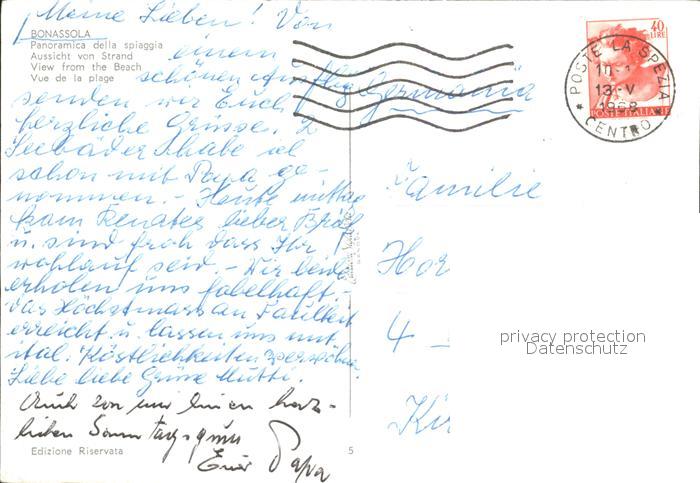 Meine Lieben! Von
BONASSOLA
Panoramica della spiaggia
Aussicht von Strand
View from the Beach
Vue de la plage
einem
schönen Ausflug
senden wir Euch
herzliche Grüsse. 2
Seebäder habe
schon mit Papa ge-
nommen. - Heute mittag
kam Renates lieber Brief
u. sind froh dass Ihr
wohlauf seid. - Wir beide
erholen uns fabelhaft -
das Höchstmass an Faulheit
erreicht u. lassen uns mit
ital. Köstlichkeiten verwöhnen
Liebe liebe Grüsse Mutti.
Auch von mir einen herz-
lichen Sonntagsgruss
Euer Papa
Edizione Riservata
5
Germania
Familie
Hor
4 -
Kir
40
LIRE
POSTE ITALIANE
POSTE LA SPEZIA
13-V
1968
CENTRO
privacy protection
Datenschutz